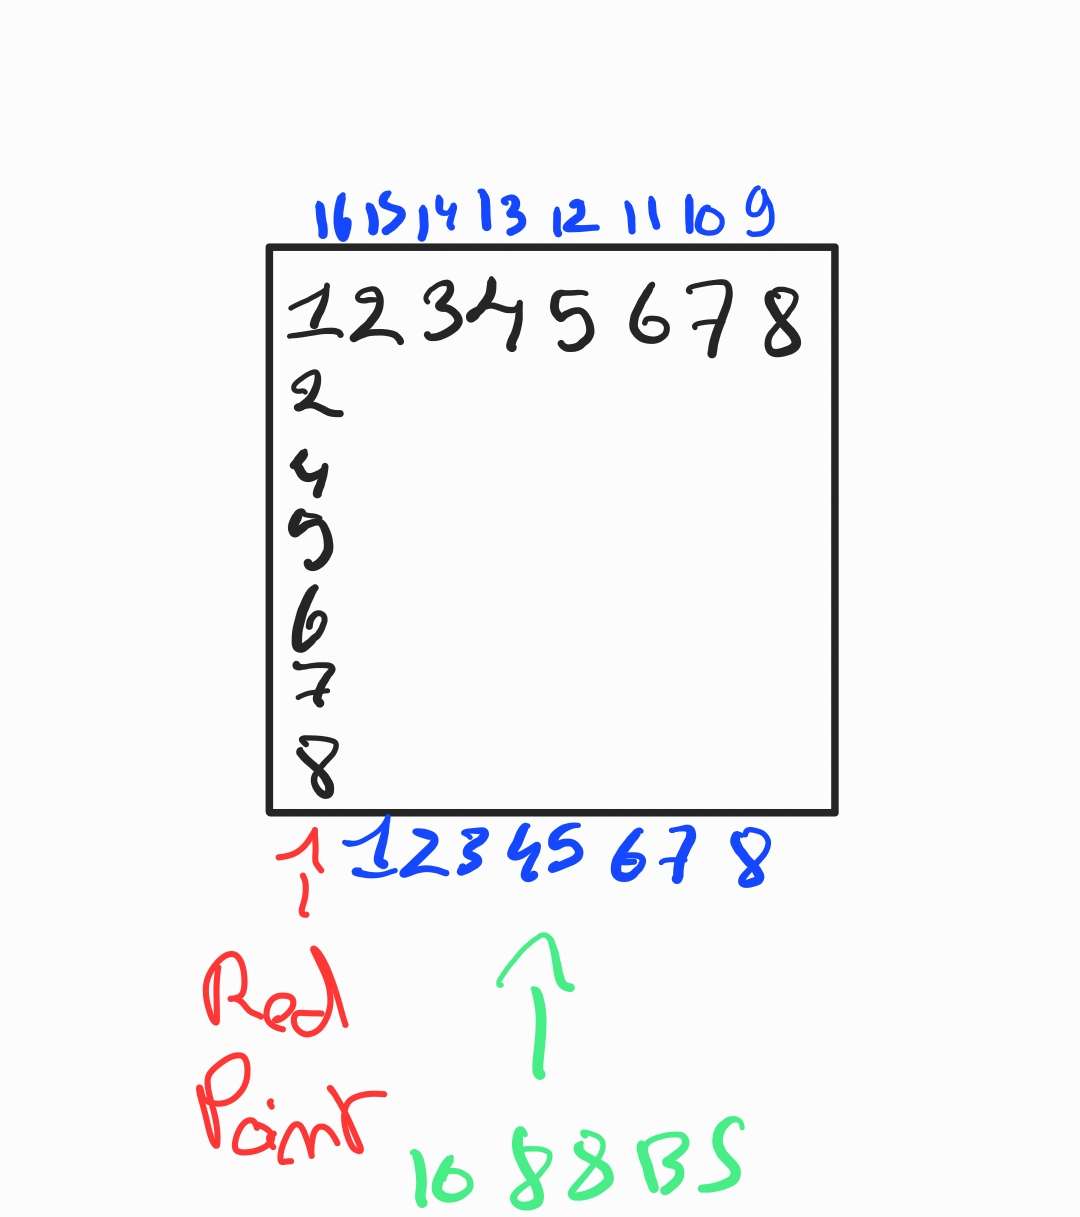 16 15 14 13 12 11 10 9
1 2 3 4 5 6 7 8
2
4
5
6
7
8
1 1 2 3 4 5 6 7 8
Red
Point
1088BS